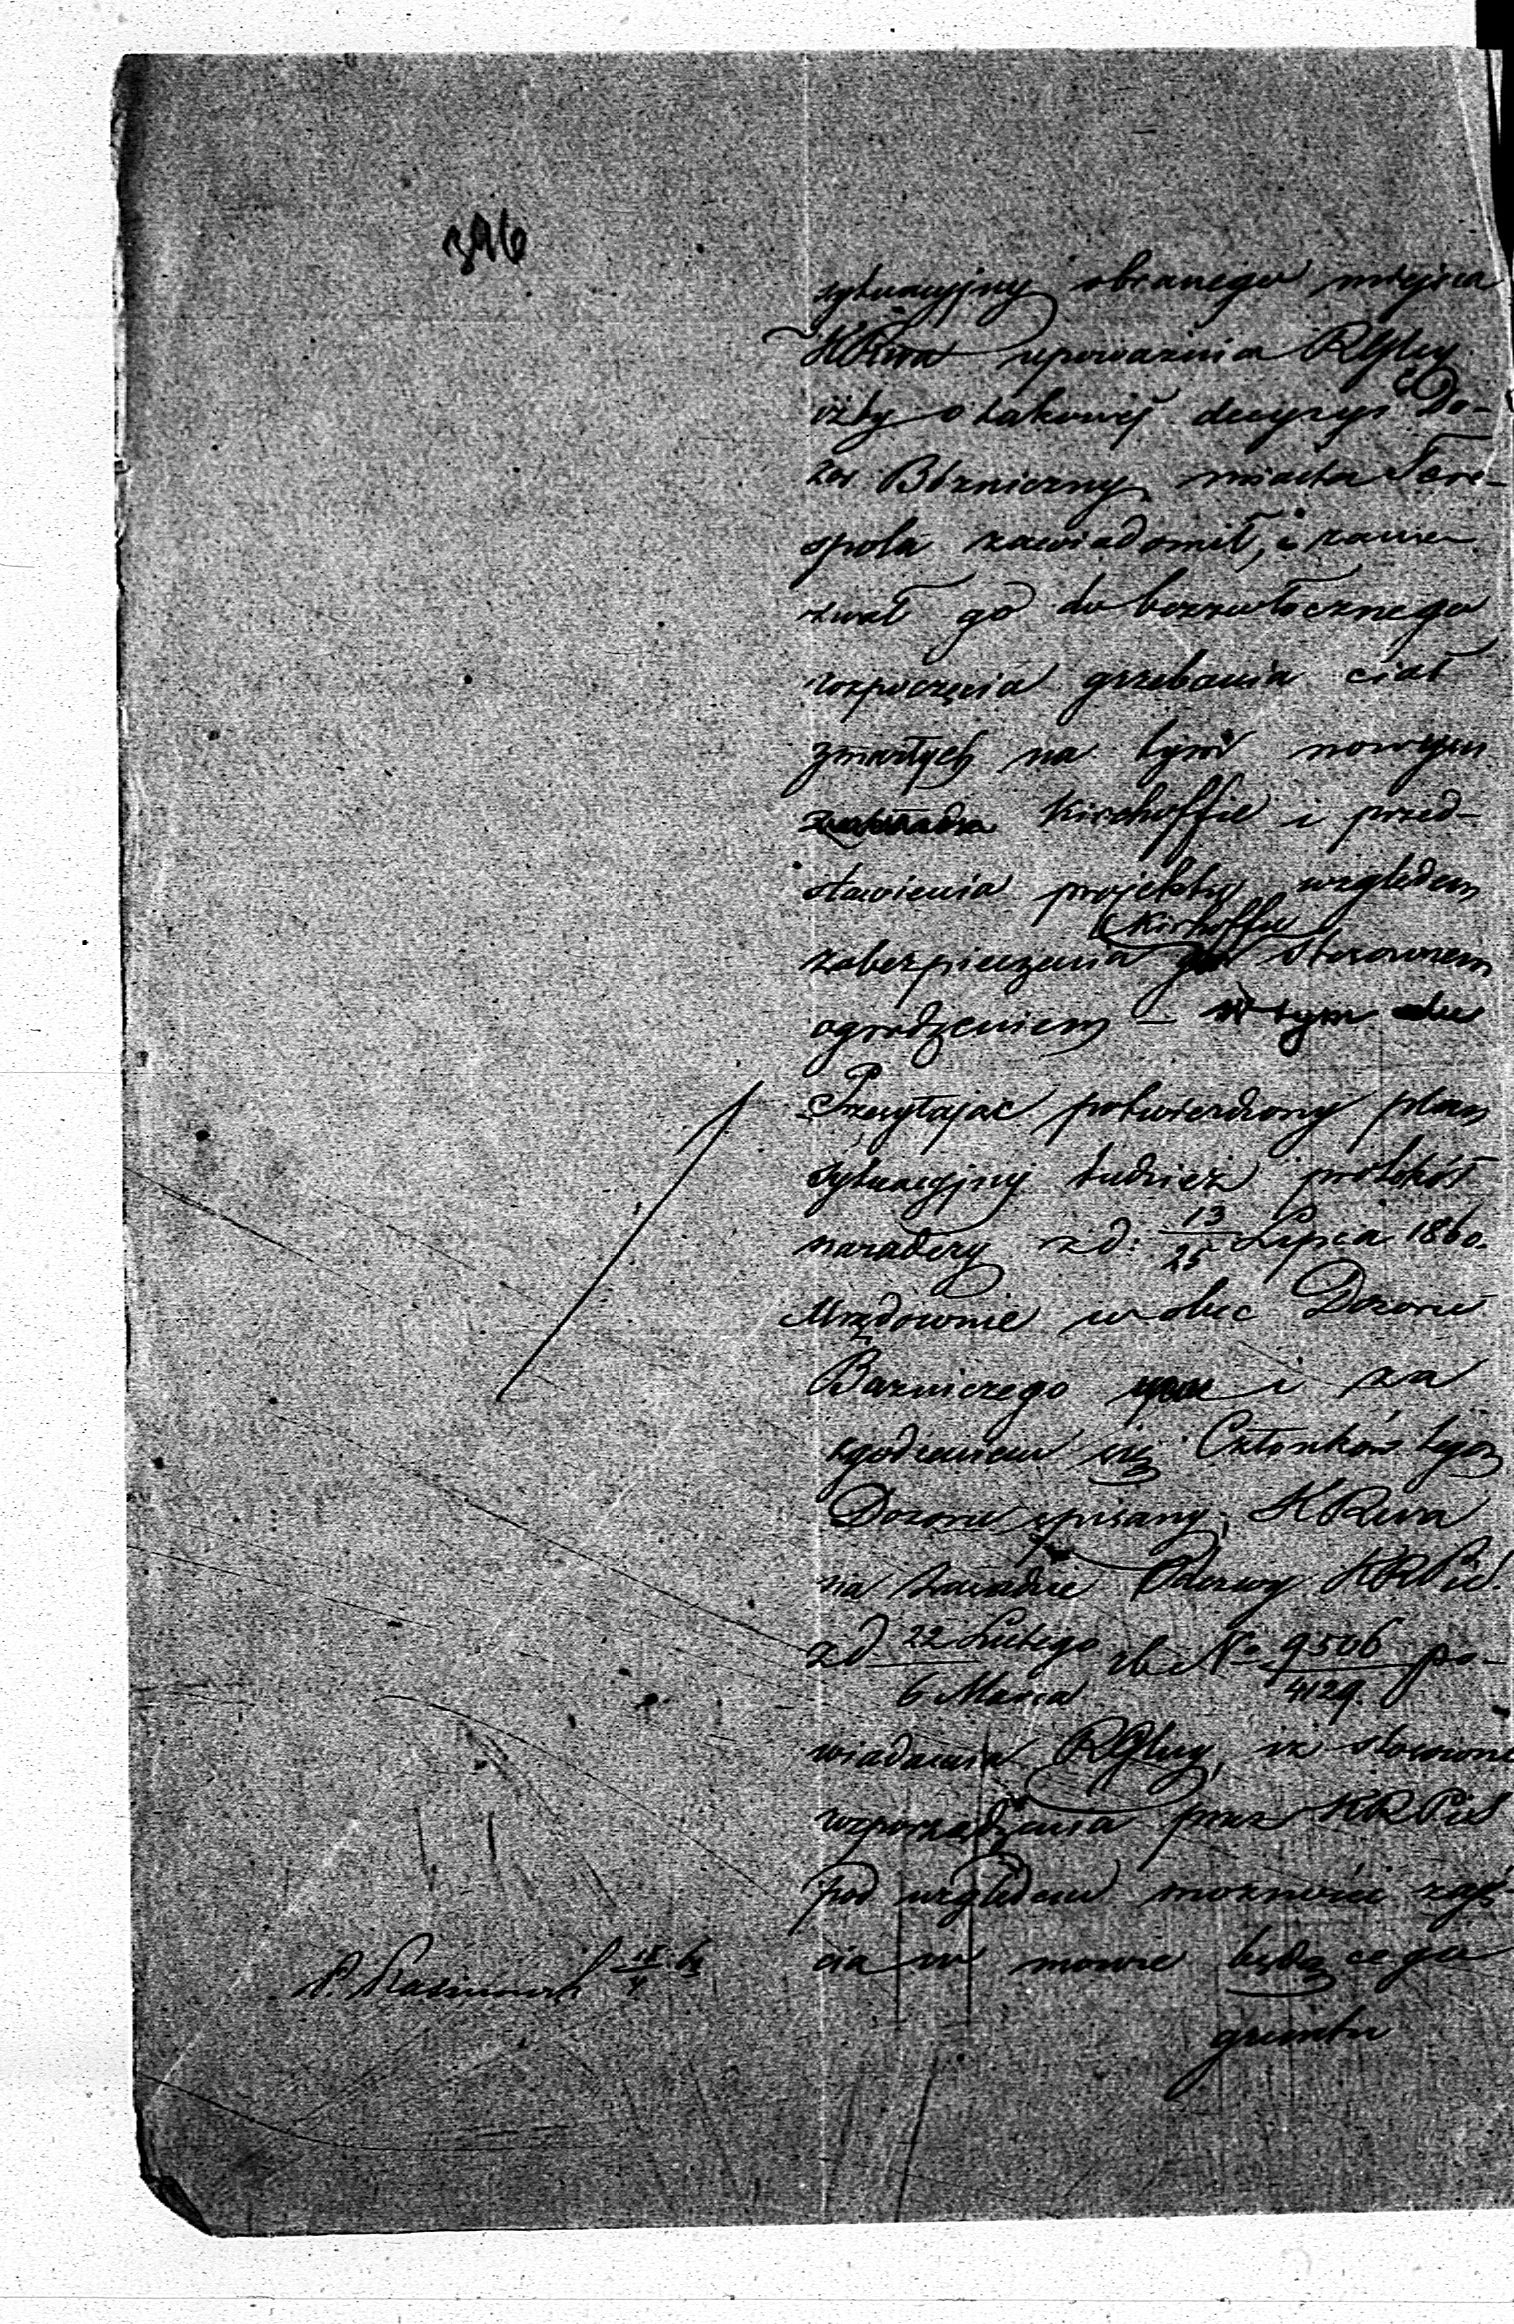 396
sytuacyjny obranego miejsca
KRwa upoważnia RGlny
iżby o takowej decyzyi Do-
zór Bóżniczny miasta Tere-
spola zawiadomił, i zawe-
zwał go do bezzwłocznego
rozpoczęcia grzebania ciał
zmarłych na tym nowym
Kirchoffie i przed-
stawienia projektu względem
Kirhoffu
zabezpieczenia stosownem
ogrodzeniem – w tym
Przesyłając potwierdzony plan
sytuacyjny tudzież protokół
naradczy z d: 13/25 Lipca 1860.
Urzędownie w obec Dozoru
Bożniczego i za
zgodzeniem się Członków tegoż
Dozoru spisany, KRwa
na zasadzie Odezwy KRPiS.
z d 22 Lutego / 6 Marca rb No 9506/4129 po-
wiadamia RGlny, iż stosowne
rozporządzenia przez KRPiS
pod względem możności zaję-
cia w mowie będącego
gruntu